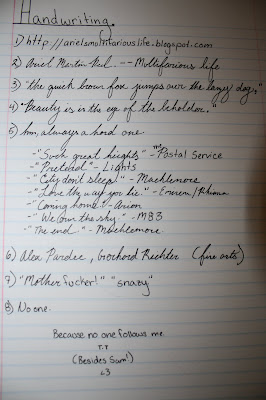 Handwriting.
1) http://arielsmultifariouslife.blogspot.com
2) Ariel Martin Neil. -- Multifarious life
3) "the quick brown fox jumps over the lazy dog."
4) "Beauty is in the eye of the beholder."
5) hm, always a hard one.
-"Such great heights" - The Postal Service
-"Pretend" - Lights
-"City don't sleep" - Macklemore
-"Love the way you lie." - Eminem/Rihanna
-"Coming home" - Arion
-"We own the sky." - M83
-"The end." - Macklemore
6) Alex Pardee, Gerhard Richter (fine arts)
7) "Motherfucker!" "snazy"
8) No one.
Because no one follows me.
T.T
(Besides Sam!)
<3